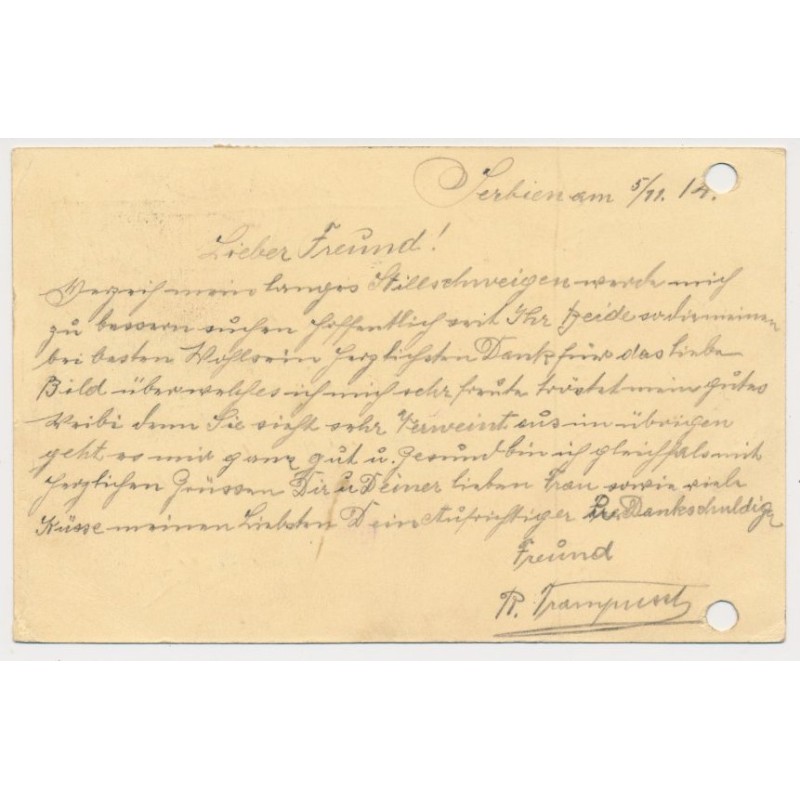 Serbien am 5/11. 14.
Lieber Freund!
Verzeih mein langes Stillschweigen werde mich
zu bessern suchen hoffentlich seit Ihr beide sowie meinen
bei besten Wohlsein herzlichsten Dank für das liebe
Bild über welches ich mich sehr freute tröstet mein gutes
Weibi denn Sie sieht sehr Verweint aus im übrigen
geht es mir ganz gut u. Gesund bin ich gleichfals mit
herzlichen Grüssen Dir u Deiner lieben Frau sowie viele
Küsse meinen Liebsten Dein Aufrichtiger Dankschuldig
Freund
R.